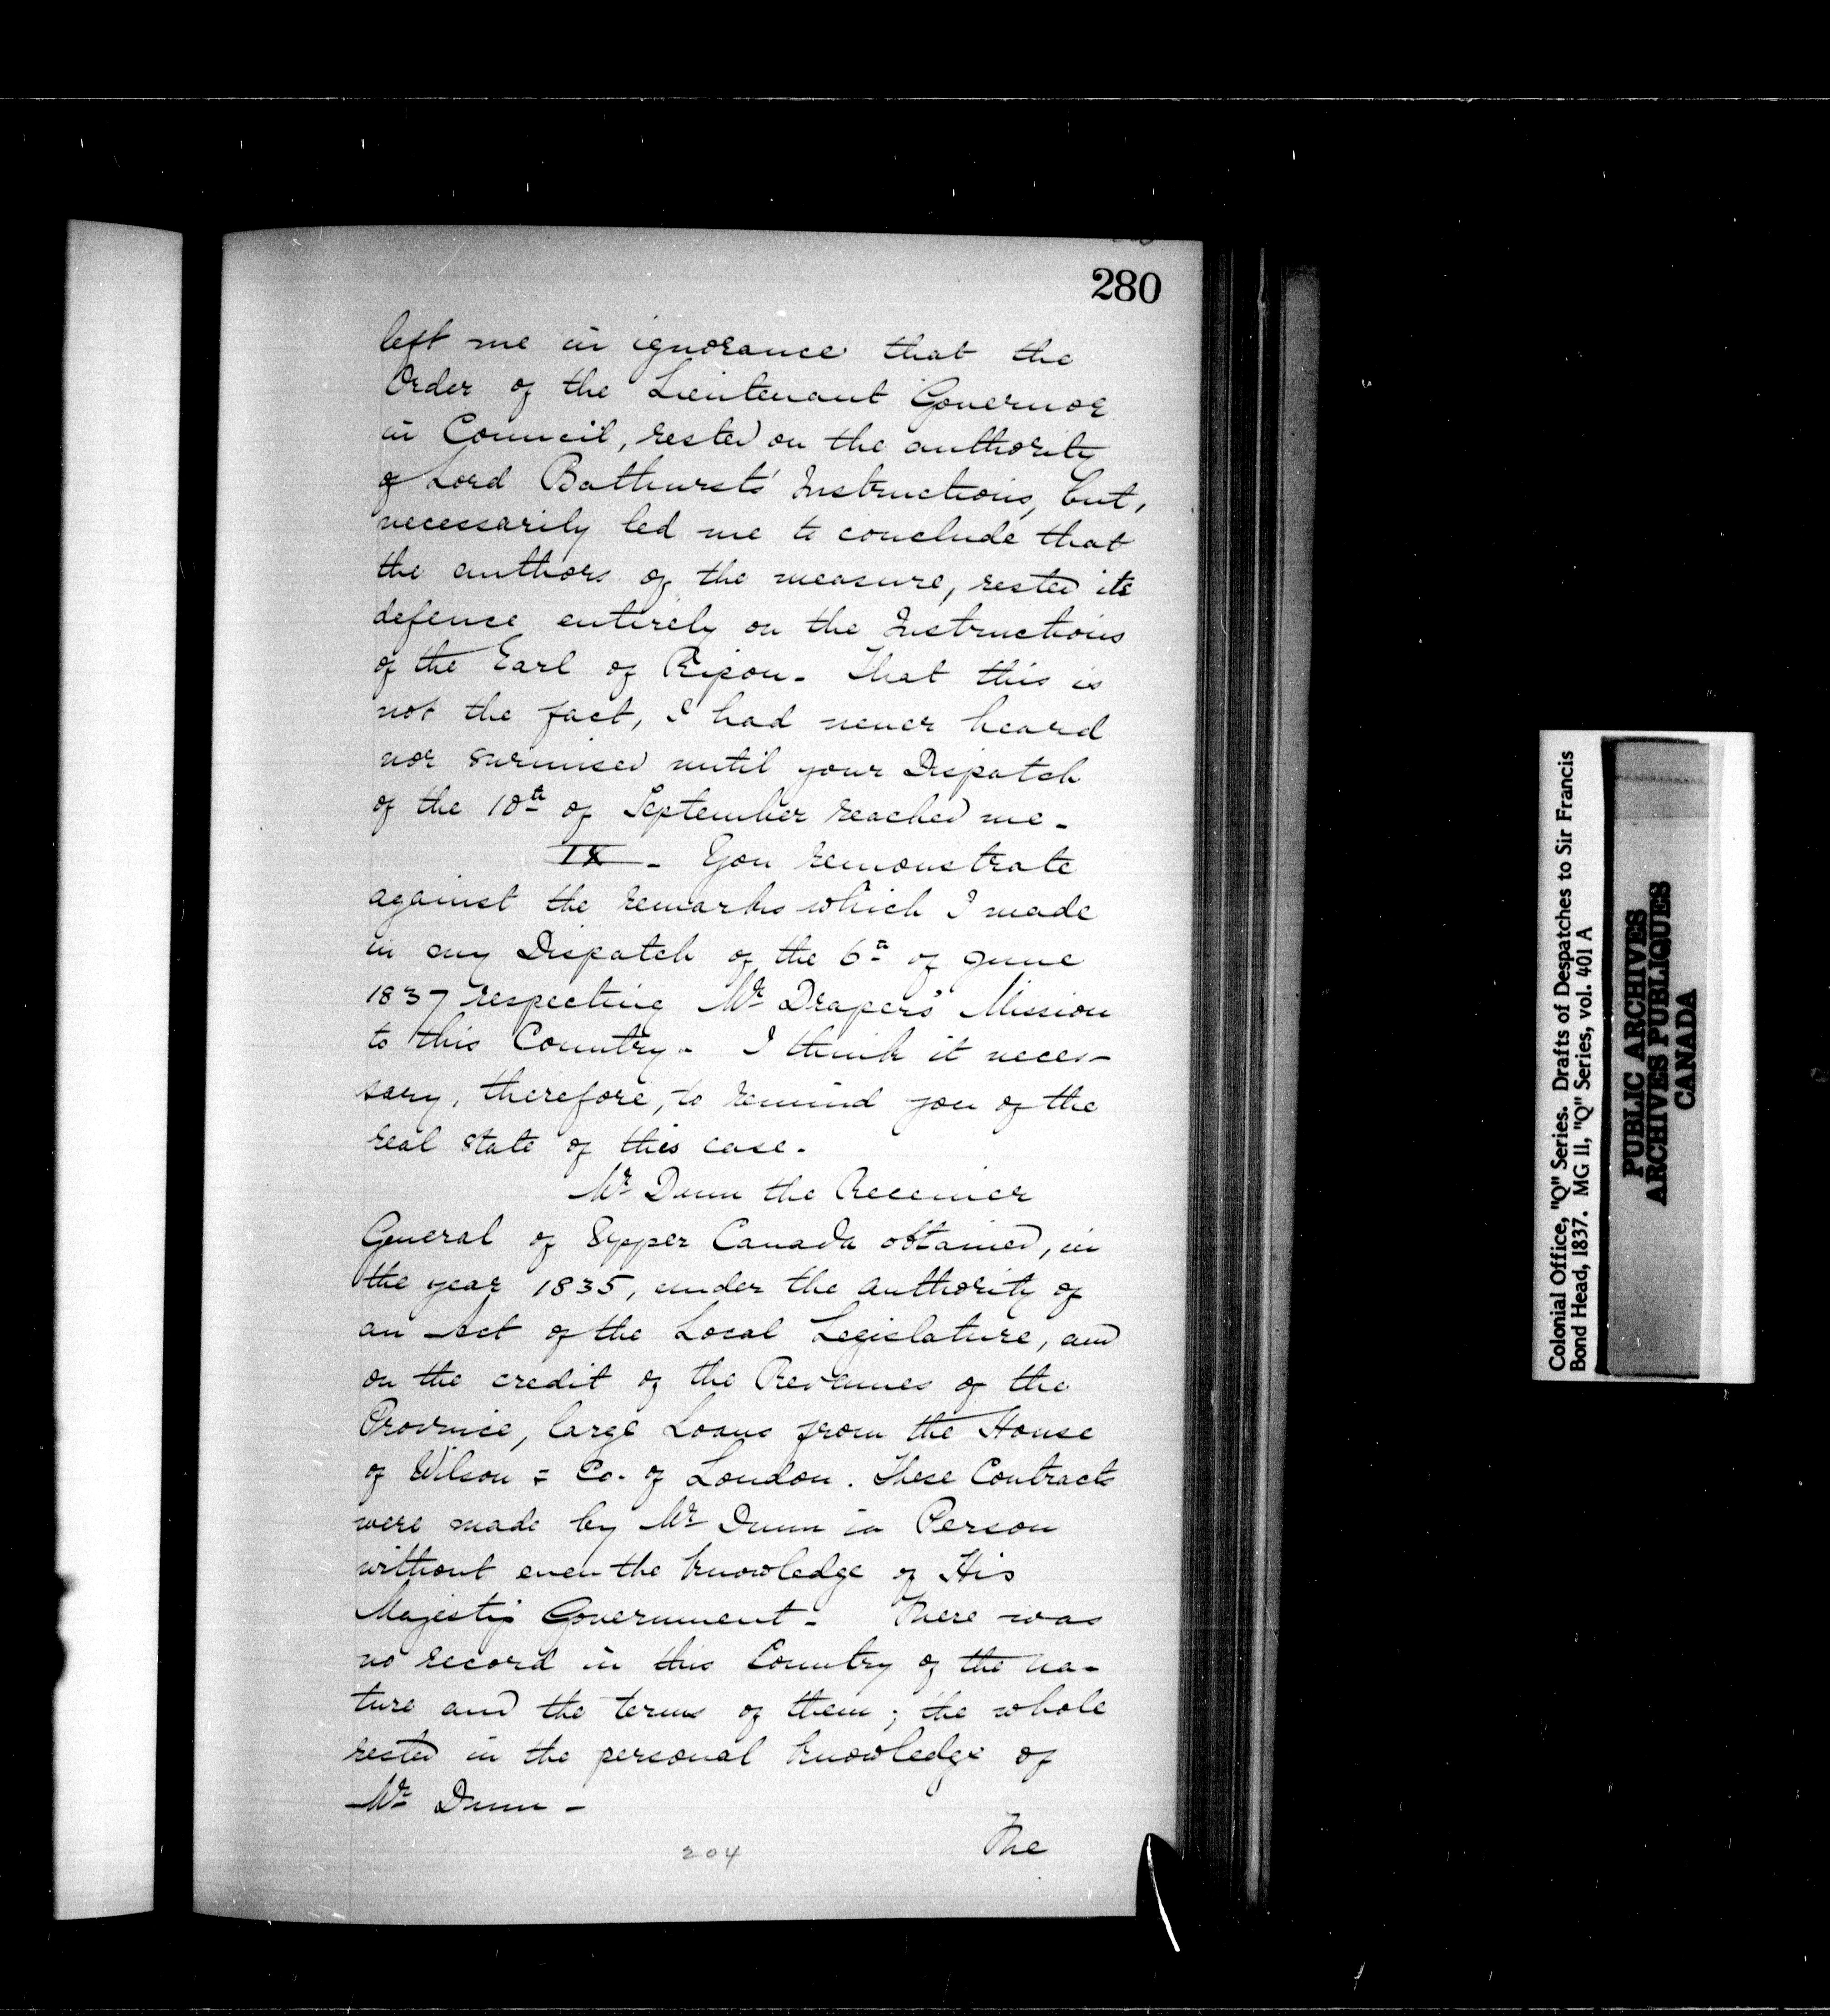 280
left me in ignorance that the
Order of the Lieutenant Governor
in Council, rested on the authority
of Lord Bathursts' Instructions, but,
necessarily led me to conclude that
the authors of the measure, rested its
defence entirely on the Instructions
of the Earl of Ripon. That this is
not the fact, I had never heard
nor surmised until your Dispatch
of the 10th of September reached me.
IX - You remonstrate
against the remarks which I made
in my Dispatch of the 6th of June
1837 respecting Mr Drapers' Mission
to this Country. I think it neces-
sary, therefore, to remind you of the
real state of this case.
Mr Dunn the Receiver
General of Upper Canada obtained, in
the year 1835, under the authority of
an Act of the Local Legislature, and
on the credit of the Revenues of the
Province, large Loans from the House
of Wilson & Co. of London. These Contracts
were made by Mr Dunn in Person
without even the knowledge of His
Majesty's Government - There was
no record in this Country of the na-
ture and the terms of them; the whole
rested in the personal knowledge of
Mr Dunn -
The
204
Colonial Office, "Q" Series. Drafts of Despatches to Sir Francis
Bond Head, 1837. MG 11, "Q" Series, vol. 401 A
PUBLIC ARCHIVES
ARCHIVES PUBLIQUES
CANADA